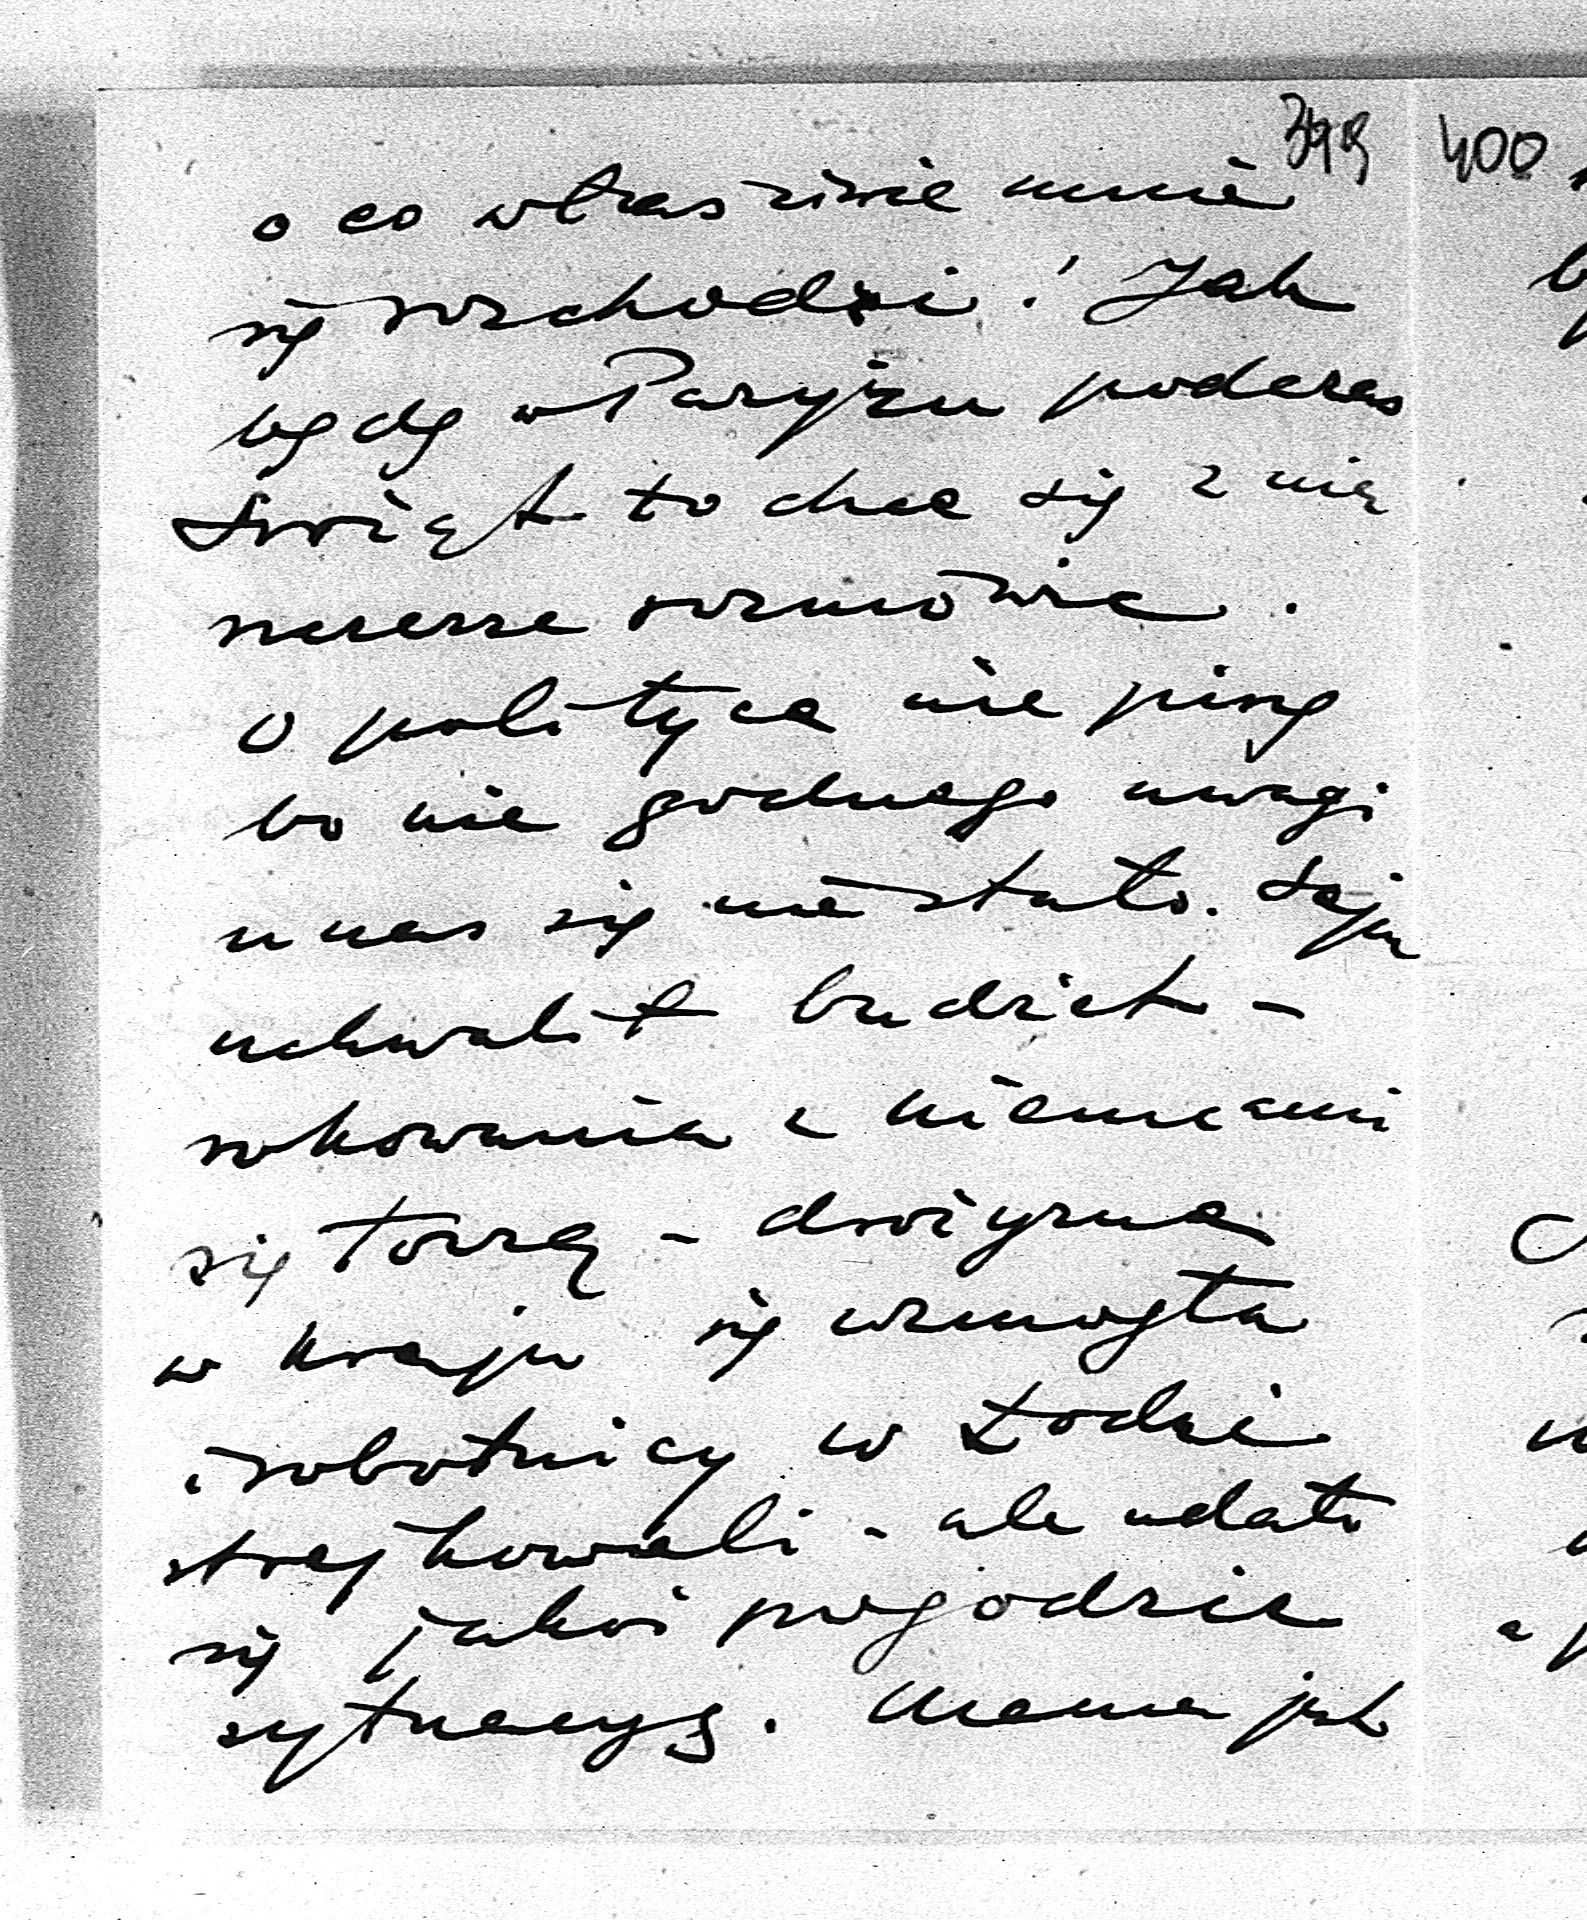 399 400
o co właściwie mnie
się rozchodzi! Jak
będę w Paryżu podczas
Świąt to chcę się z nią
szczerze rozmówić.
O polityce nie piszę
bo nic godnego uwagi
u nas się nie stało. Sejm
uchwalił budżet –
rokowania z Niemcami
się toczą – drożyzna
w kraju się wzmogła
i robotnicy w Łodzi
strajkowali – ale udało
się jakoś pogodzić
sytuację. Mama jak